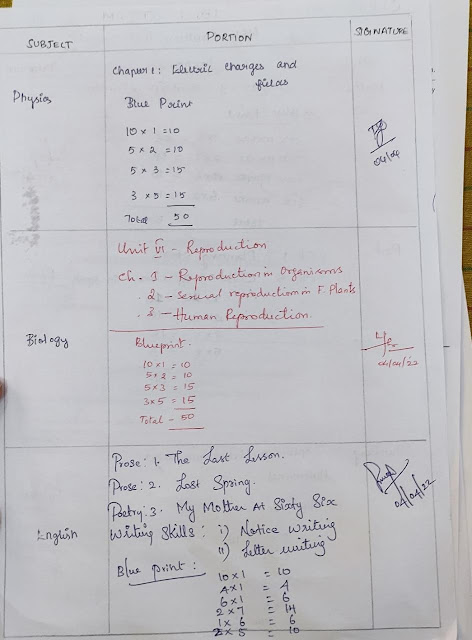 SUBJECT PORTION SIGNATURE
Physics
Chapter 1: Electric charges and
fields
Blue Print
10 x 1 = 10
5 x 2 = 10
5 x 3 = 15
3 x 5 = 15
Total 50
04/04
Biology
Unit VI - Reproduction
Ch. 1 - Reproduction in Organisms
2 - Sexual reproduction in F. Plants
3 - Human Reproduction.
Blueprint.
10x1 = 10
5x2 = 10
5x3 = 15
3x5 = 15
Total - 50
04/04/22
English
Prose: 1. The Last Lesson.
Prose: 2. Lost Spring.
Poetry: 3. My Mother At Sixty Six
Writing Skills: i) Notice Writing
ii) Letter writing
Blue print:
10x1 = 10
4x1 = 4
6x1 = 6
2x7 = 14
1x6 = 6
2x5 = 10
04/04/22